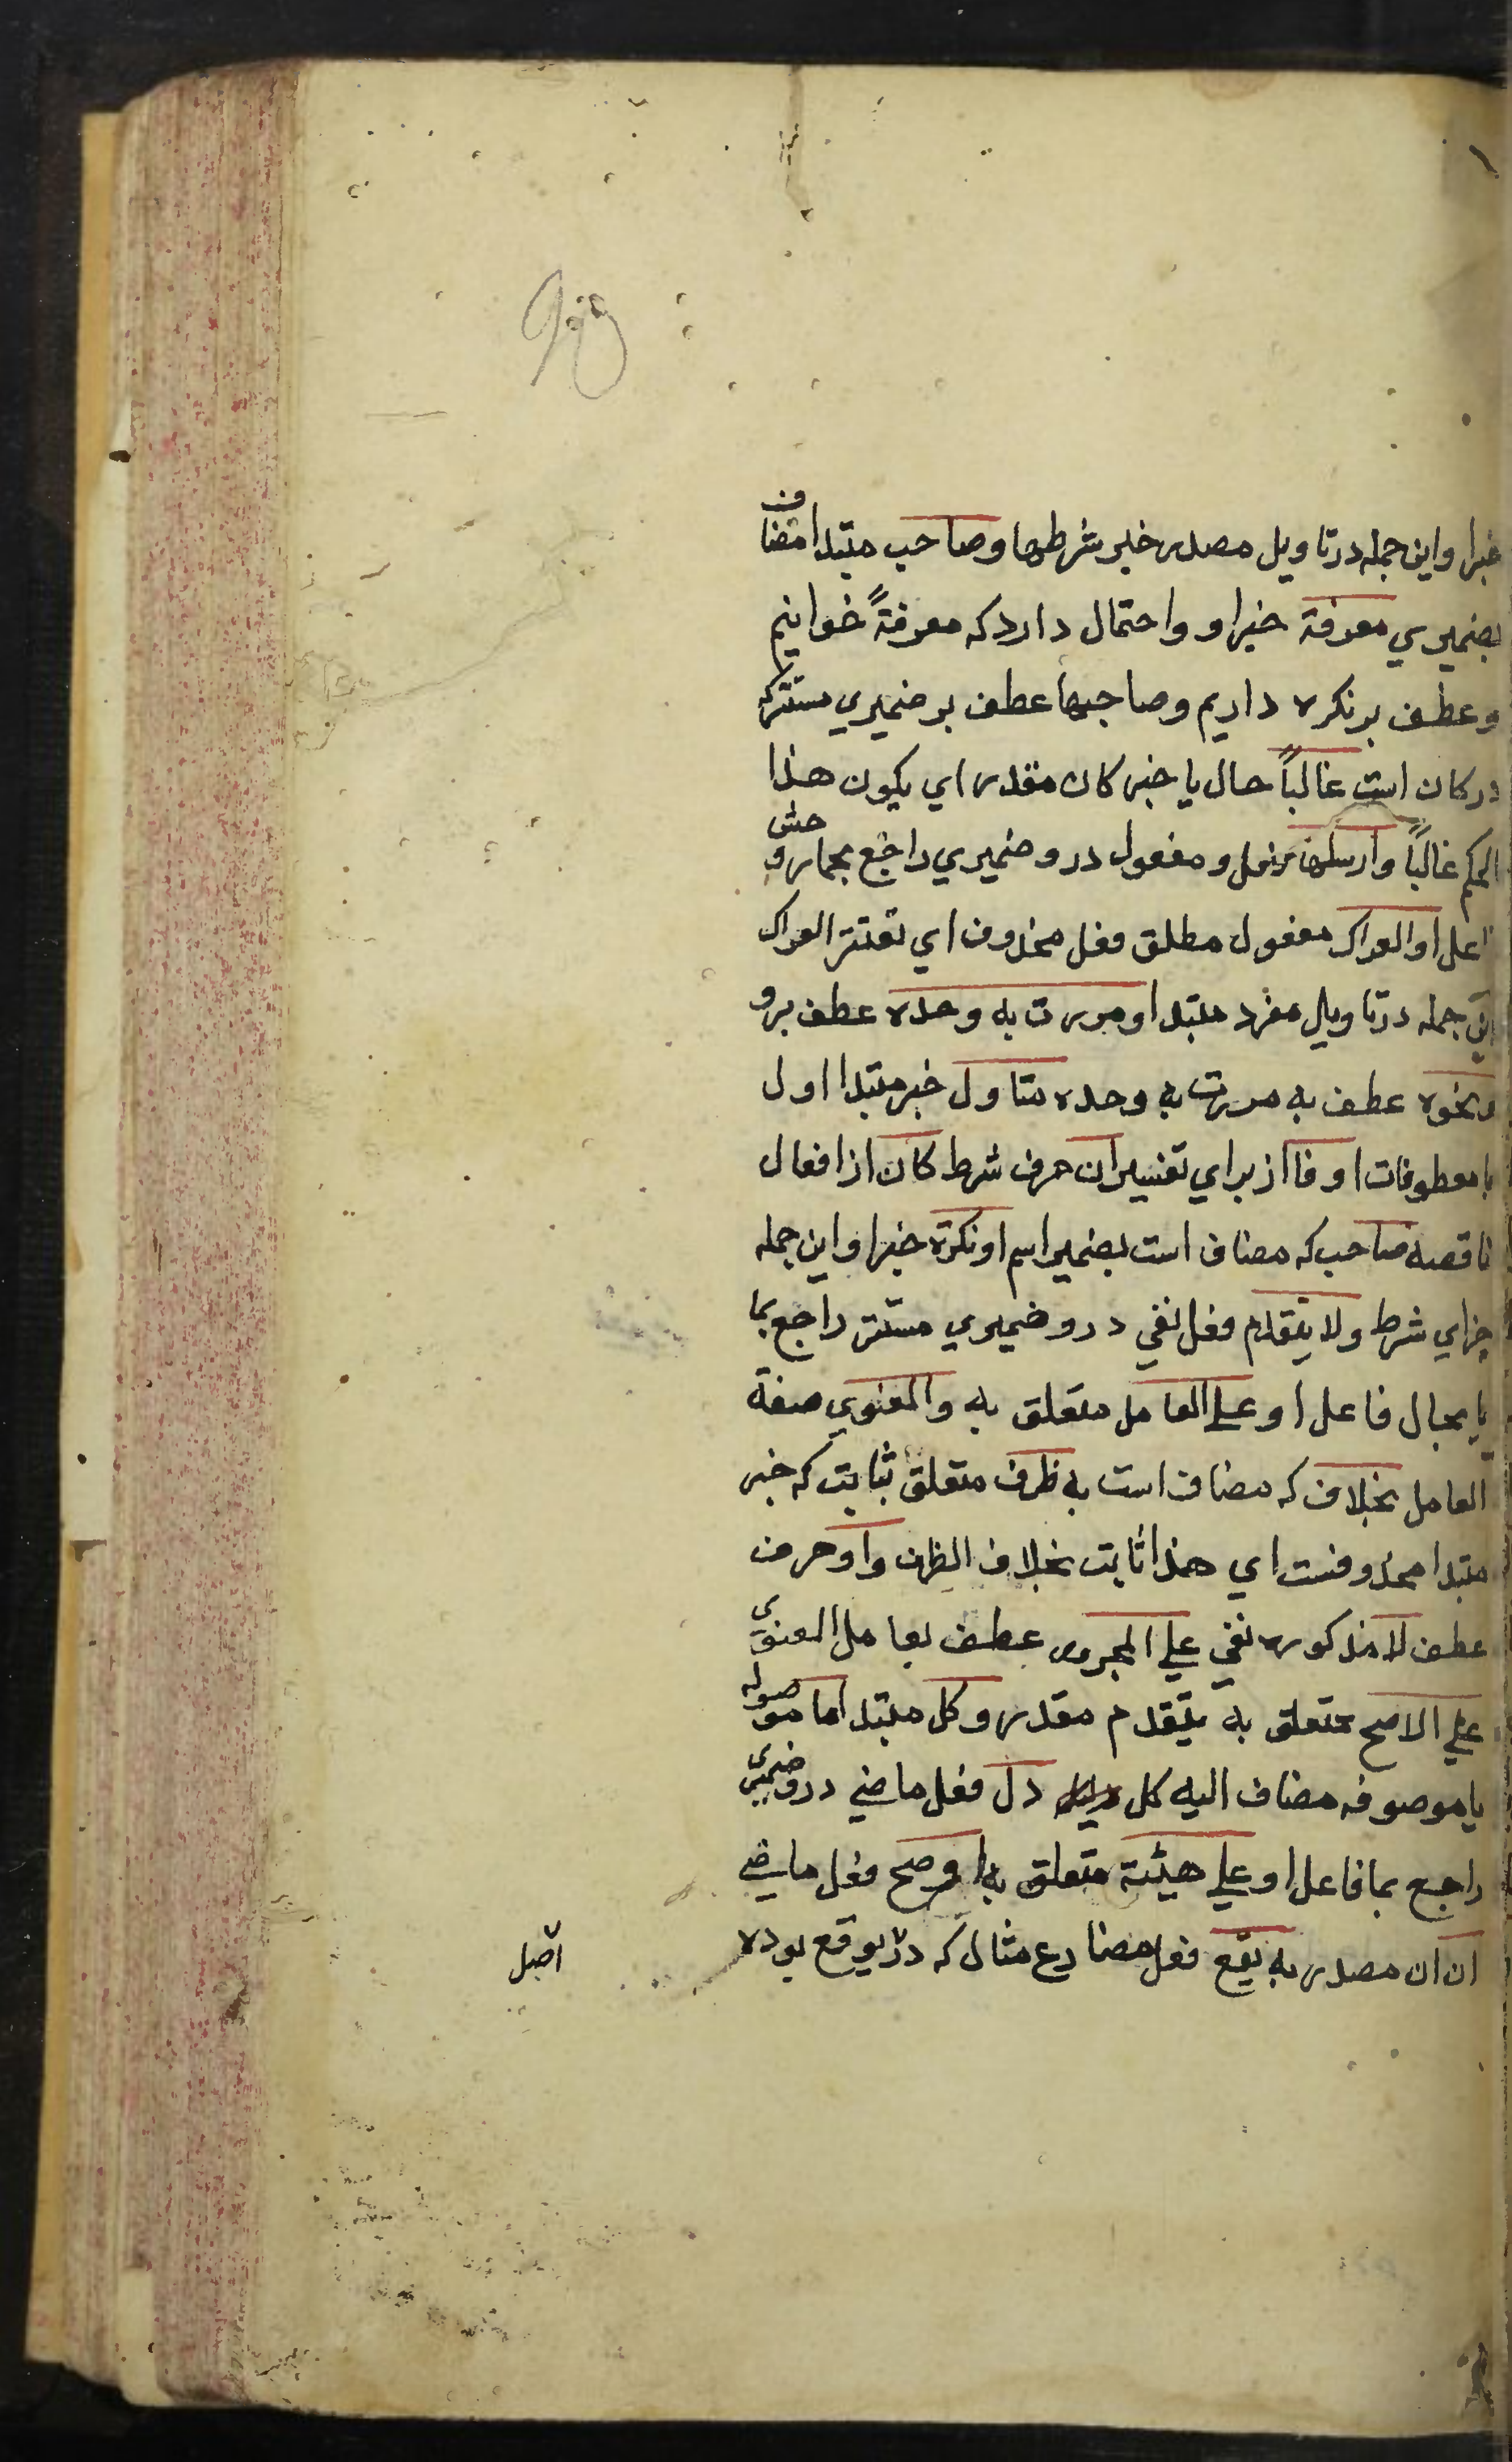 خبرا واین جمله در تاویل مصدر خبر شرطها وصاحب مبتدا مضاف
بضمیری معرفة خبرا و واحتمال دارد که معرفةً خوانیم
وعطف بر نکره داریم وصاحبها عطف بر ضمیری مستتر که
در کان است غالباً حال یا خبر کان مقدر ای یکون هذا
الحکم غالباً وارسلها فعل ومفعول درو ضمیری راجع بحمار وحش
فاعل او العراک مفعول مطلق فعل محذوف ای تعترک العراک
این جمله در تاویل مفرد مبتدا ومررت به وحده عطف برو
ونحوه عطف به مررت به وحده متاول خبر مبتدا اول
با معطوفات او فا از برای تفسیر ان حرف شرط کان از افعال
ناقصه صاحب که مضاف است بضمیر اسم او نکرة خبر او این جمله
جزای شرط ولا یتقدم فعل نفی درو ضمیری مستتر راجع بما
یا بحال فاعل او علی العامل متعلق به والمعنوی صفة
العامل بخلاف که مضاف است به ظرف متعلق بثابت که خبر
مبتدا محذوفست ای هذا ثابت بخلاف الظرف واو حرف
عطف لا مذکوره نفی علی المجرور عطف بعامل المعنوی
علی الاصح متعلق به یتقدم مقدر وکل مبتدا ما موصوله
یا موصوفه مضاف الیه کل دل فعل ماضی درو ضمیری
راجع بما فاعل او علی هیئة متعلق به او صح فعل ماضی
ان ان مصدریه یقع فعل مضارع مثال که در یوقع بوده
اصل